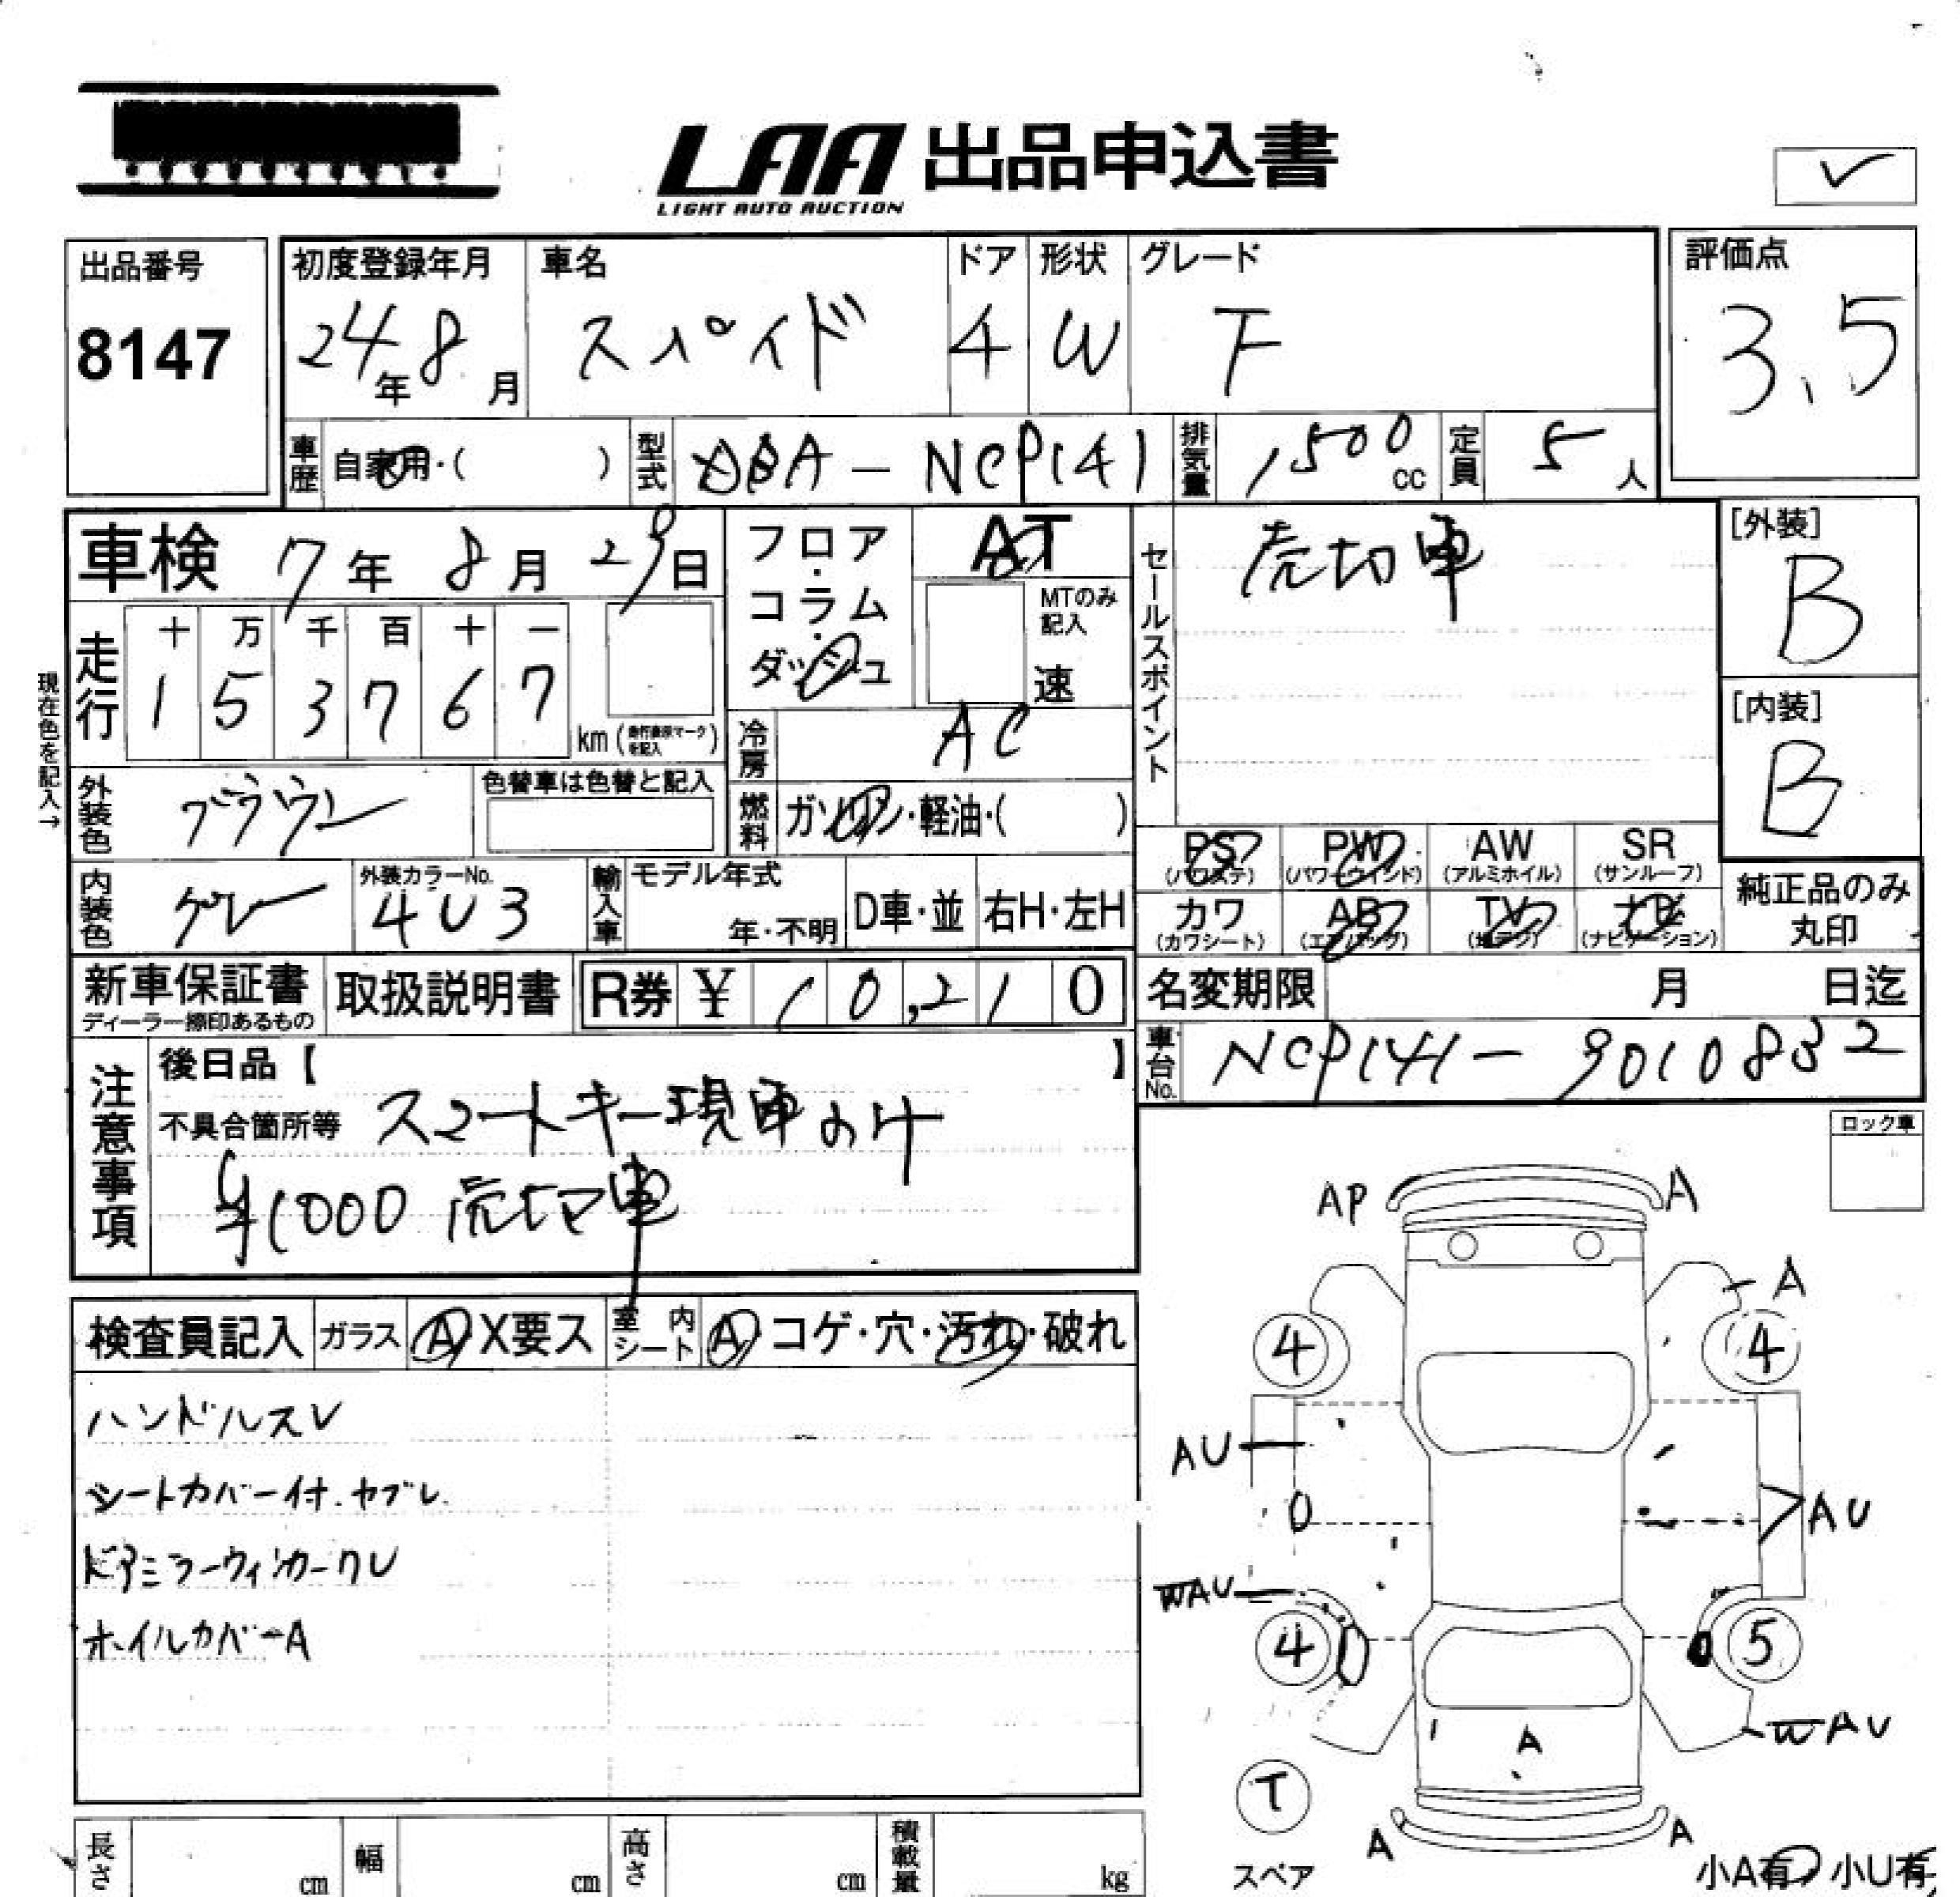 LAA 出品申込書
LIGHT AUTO AUCTION
出品番号
8147
初度登録年月
24年8月
車名
スペイド
ドア
4
形状
W
グレード
F
評価点
3.5
車歴
自家用・( )
型式
DBA-NCP141
排気量
1500cc
定員
5人
車検 7年 8月 29日
フロア・コラム・ダッシュ
AT
MTのみ記入
速
セールスポイント
売切車
[外装]
B
[内装]
B
現在色を記入→
走行
十 万 千 百 十 一
1 5 3 7 6 7
km(走行表示マークを記入)
冷房
AC
外装色
ブラウン
色替車は色替と記入
燃料
ガソリン・軽油・( )
内装色
グレー
外装カラーNo.
4U3
輸入車
モデル年式
年・不明
D車・並
右H・左H
PS (パワステ)
PW (パワーウインド)
AW (アルミホイル)
SR (サンルーフ)
カワ (カワシート)
AB (エアバッグ)
TV (地デジ)
(ナビゲーション)
純正品のみ丸印
新車保証書
ディーラー捺印あるもの
取扱説明書
R券 ¥ 10,210
名変期限 月 日迄
車台No.
NCP141-9010832
注意事項
後日品【 】
不具合箇所等 スマートキー現車のみ
¥1000 売切車
ロック車
検査員記入
ガラス A X要ス
室内シート A・コゲ・穴・汚れ・破れ
ハンドルスレ
シートカバー付.ヤブレ
ドアミラーウィンカークU
ホイルカバーA
AP
A
A
4
4
AU
AU
WAU
4
5
WAU
A
T
スペア
A
A
小A有 小U有
長さ cm
幅 cm
高さ cm
積載量 kg